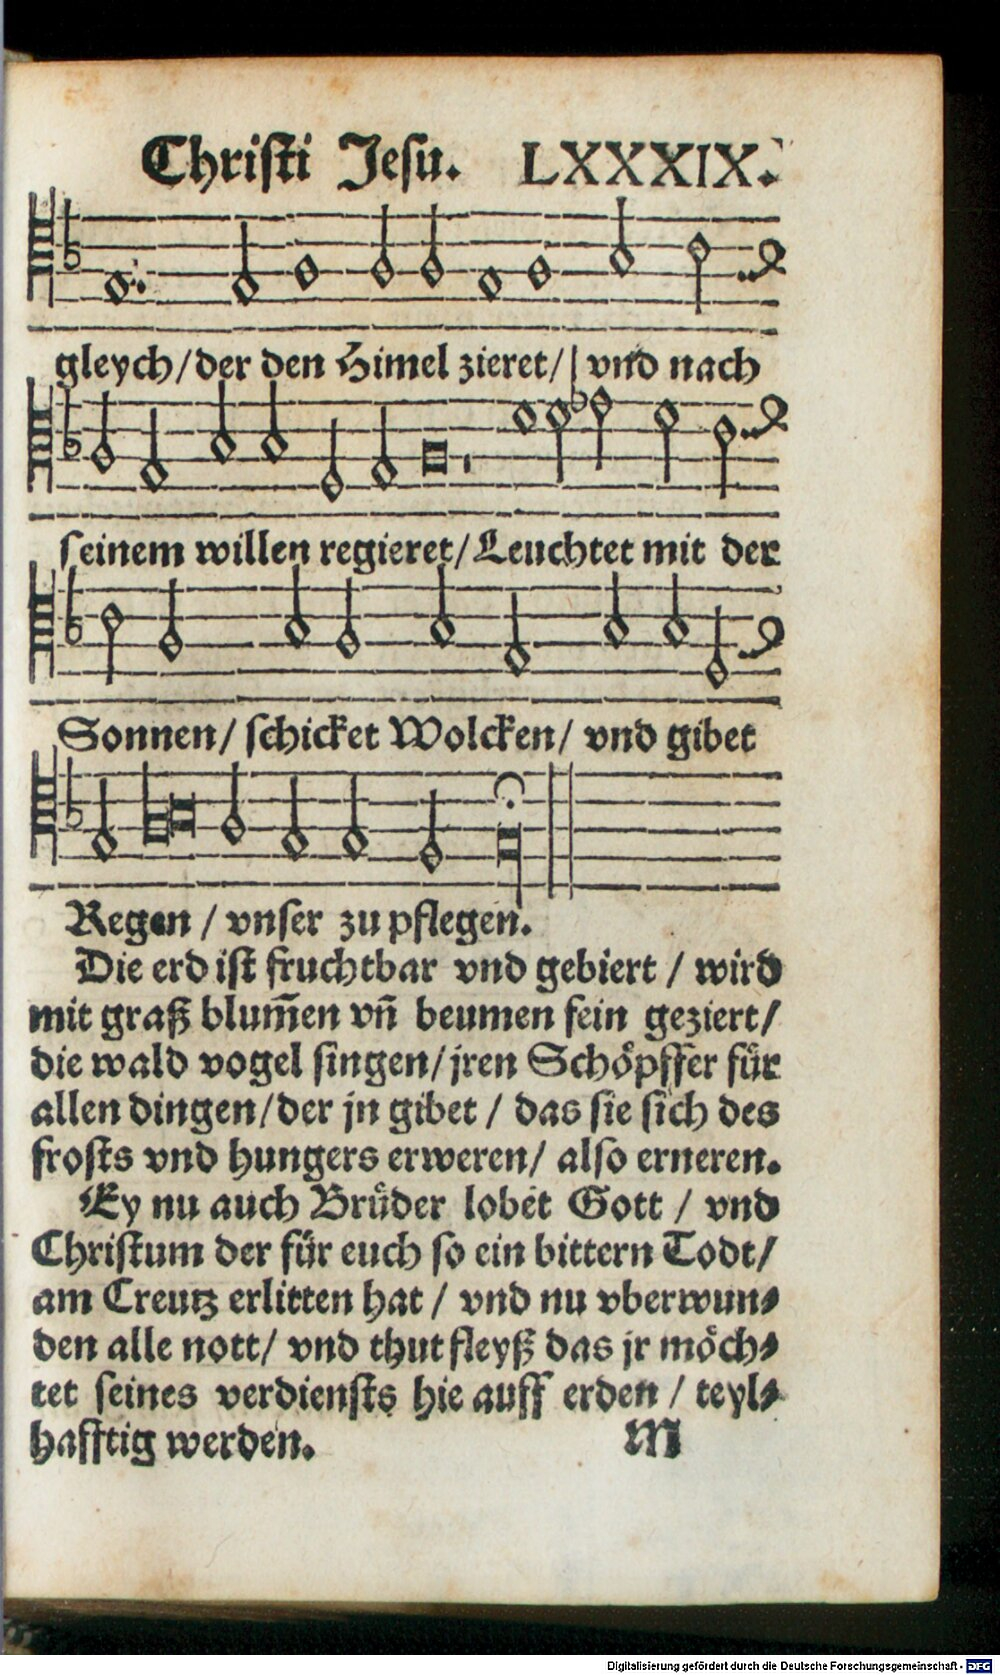 Christi Jesu. LXXXIX.
gleych/der den Himel zieret/ vnd nach
seinem willen regieret/Leuchtet mit der
Sonnen/ schicket Wolcken/ vnd gibet
Regen / vnser zu pflegen.
Die erd ist fruchtbar vnd gebiert / wird
mit graß blum̃en vñ beumen fein geziert/
die wald vogel singen/jren Schoͤpffer fuͤr
allen dingen/der jn gibet / das sie sich des
frosts vnd hungers erweren/ also erneren.
Ey nu auch Bruͤder lobet Gott / vnd
Christum der fuͤr euch so ein bittern Todt/
am Creutz erlitten hat / vnd nu vberwun⸗
den alle nott/ vnd thut fleyß das jr moͤch⸗
tet seines verdiensts hie auff erden / teyl⸗
hafftig werden. M
Digitalisierung gefördert durch die Deutsche Forschungsgemeinschaft - DFG